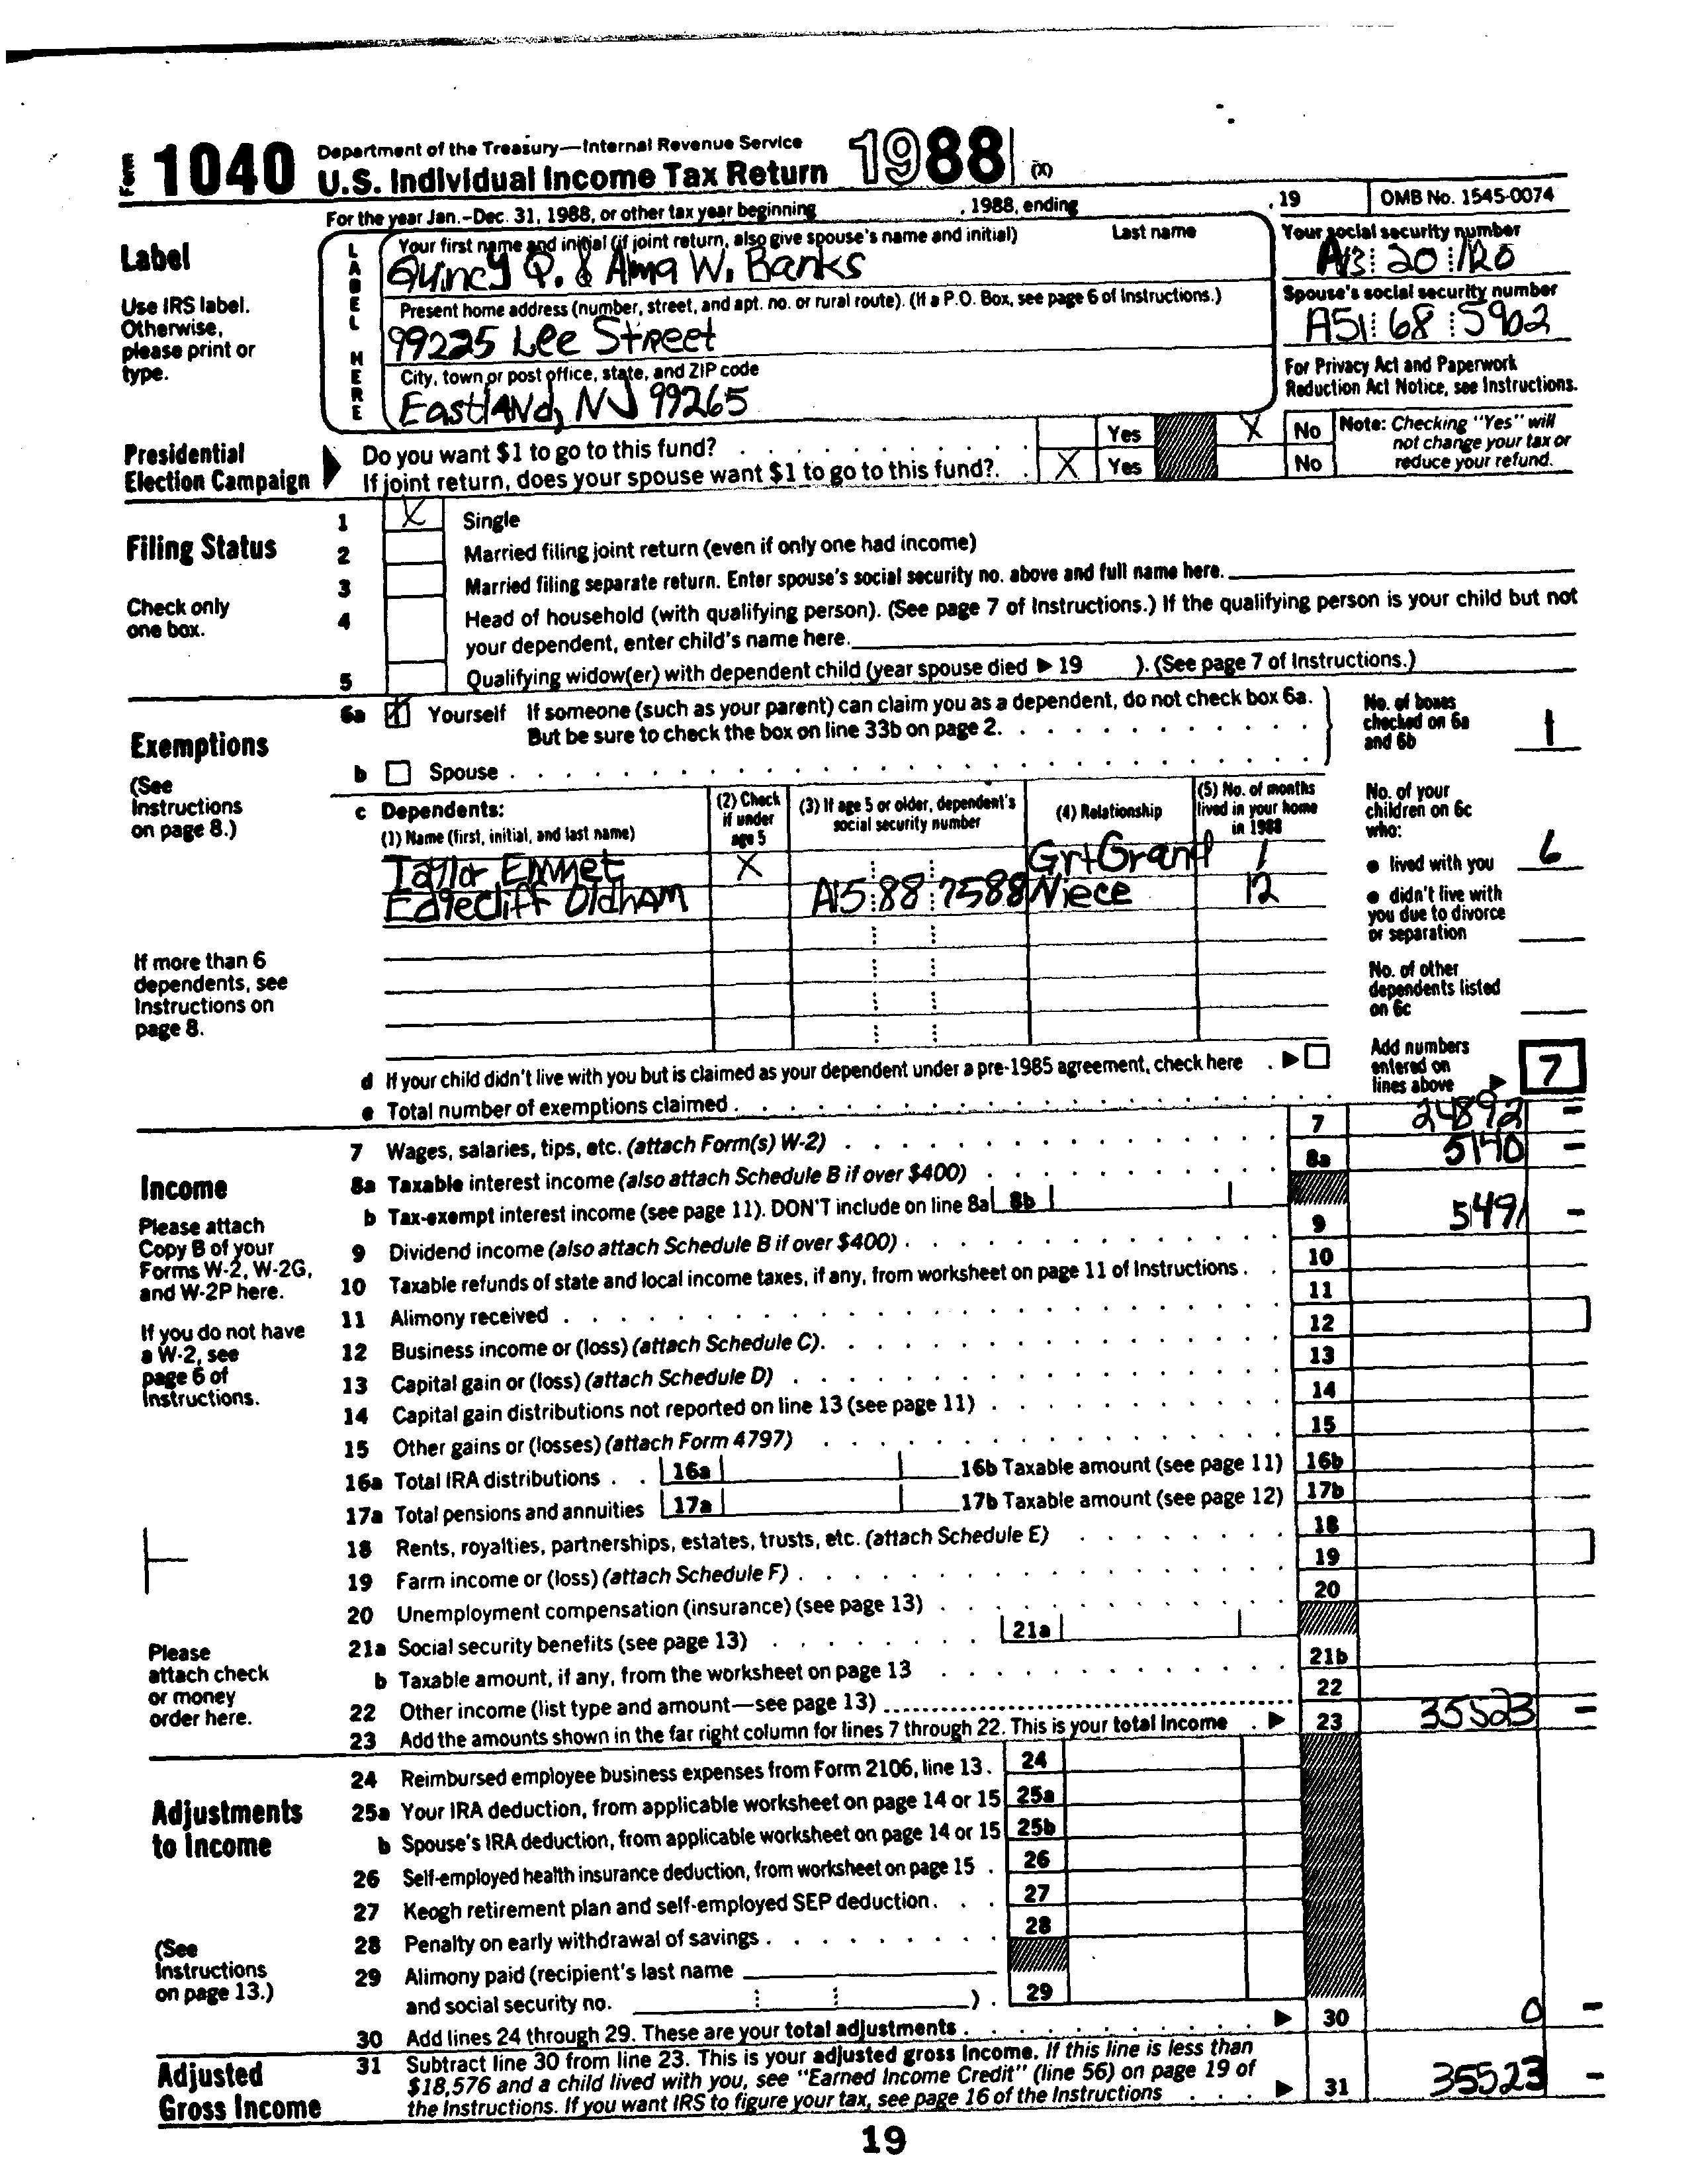 Form 1040 Department of the Treasury—Internal Revenue Service
U.S. Individual Income Tax Return 1988 (X)
For the year Jan.–Dec. 31, 1988, or other tax year beginning , 1988, ending , 19 OMB No. 1545-0074
Label
Use IRS label.
Otherwise,
please print or
type.
LABEL HERE
Your first name and initial (if joint return, also give spouse's name and initial) Last name
Quincy Q. & Alma W. Banks
Your social security number
A13 20 1120
Present home address (number, street, and apt. no. or rural route). (If a P.O. Box, see page 6 of Instructions.)
99225 Lee Street
Spouse's social security number
A51 68 5902
City, town or post office, state, and ZIP code
Eastland, NJ 99265
For Privacy Act and Paperwork
Reduction Act Notice, see Instructions.
Presidential
Election Campaign
Do you want $1 to go to this fund? Yes X No
If joint return, does your spouse want $1 to go to this fund? X Yes No
Note: Checking "Yes" will
not change your tax or
reduce your refund.
Filing Status
Check only
one box.
1 X Single
2 Married filing joint return (even if only one had income)
3 Married filing separate return. Enter spouse's social security no. above and full name here.
4 Head of household (with qualifying person). (See page 7 of Instructions.) If the qualifying person is your child but not
your dependent, enter child's name here.
5 Qualifying widow(er) with dependent child (year spouse died ▶ 19 ). (See page 7 of Instructions.)
Exemptions
(See
Instructions
on page 8.)
6a X Yourself If someone (such as your parent) can claim you as a dependent, do not check box 6a.
But be sure to check the box on line 33b on page 2.
b Spouse
No. of boxes
checked on 6a
and 6b 1
c Dependents:
(1) Name (first, initial, and last name)
(2) Check
if under
age 5
(3) If age 5 or older, dependent's
social security number
(4) Relationship
(5) No. of months
lived in your home
in 1988
Taylor Emmet X GrtGrand 1
Edgecliff Oldham A15 88 7588 Niece 12
No. of your
children on 6c
who:
● lived with you 6
● didn't live with
you due to divorce
or separation
No. of other
dependents listed
on 6c
If more than 6
dependents, see
Instructions on
page 8.
d If your child didn't live with you but is claimed as your dependent under a pre-1985 agreement, check here ▶
e Total number of exemptions claimed
Add numbers
entered on
lines above ▶ 7
Income
Please attach
Copy B of your
Forms W-2, W-2G,
and W-2P here.
If you do not have
a W-2, see
page 6 of
Instructions.
Please
attach check
or money
order here.
7 Wages, salaries, tips, etc. (attach Form(s) W-2) 7 24892 –
8a Taxable interest income (also attach Schedule B if over $400) 8a 5140 –
b Tax-exempt interest income (see page 11). DON'T include on line 8a 8b
9 Dividend income (also attach Schedule B if over $400) 9 5491 –
10 Taxable refunds of state and local income taxes, if any, from worksheet on page 11 of Instructions 10
11 Alimony received 11
12 Business income or (loss) (attach Schedule C) 12
13 Capital gain or (loss) (attach Schedule D) 13
14 Capital gain distributions not reported on line 13 (see page 11) 14
15 Other gains or (losses) (attach Form 4797) 15
16a Total IRA distributions 16a 16b Taxable amount (see page 11) 16b
17a Total pensions and annuities 17a 17b Taxable amount (see page 12) 17b
18 Rents, royalties, partnerships, estates, trusts, etc. (attach Schedule E) 18
19 Farm income or (loss) (attach Schedule F) 19
20 Unemployment compensation (insurance) (see page 13) 20
21a Social security benefits (see page 13) 21a
b Taxable amount, if any, from the worksheet on page 13 21b
22 Other income (list type and amount—see page 13) 22
23 Add the amounts shown in the far right column for lines 7 through 22. This is your total income ▶ 23 35523 –
Adjustments
to Income
(See
Instructions
on page 13.)
24 Reimbursed employee business expenses from Form 2106, line 13 24
25a Your IRA deduction, from applicable worksheet on page 14 or 15 25a
b Spouse's IRA deduction, from applicable worksheet on page 14 or 15 25b
26 Self-employed health insurance deduction, from worksheet on page 15 26
27 Keogh retirement plan and self-employed SEP deduction 27
28 Penalty on early withdrawal of savings 28
29 Alimony paid (recipient's last name
and social security no. ) 29
30 Add lines 24 through 29. These are your total adjustments ▶ 30 0 –
Adjusted
Gross Income
31 Subtract line 30 from line 23. This is your adjusted gross income. If this line is less than
$18,576 and a child lived with you, see "Earned Income Credit" (line 56) on page 19 of
the Instructions. If you want IRS to figure your tax, see page 16 of the Instructions ▶ 31 35523 –
19